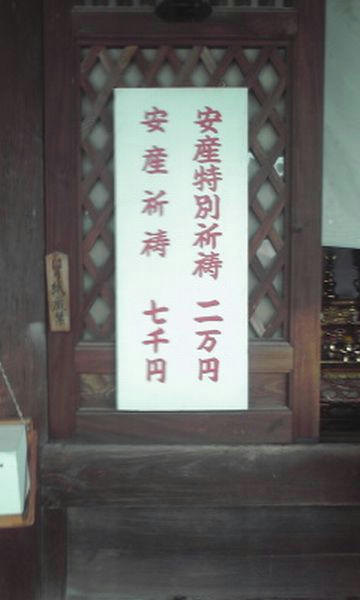 安産特別祈祷 二万円
安産祈祷 七千円